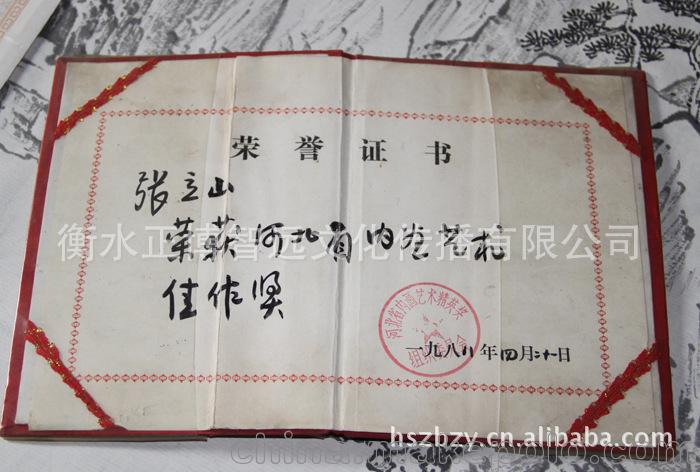 荣誉证书
张立山
荣获河北省内画艺术
衡水正博智远文化传播有限公司
佳作奖
河北省内画艺术精英奖
组织委员会
一九八八年四月二十日
hszbzy.cn.alibaba.com